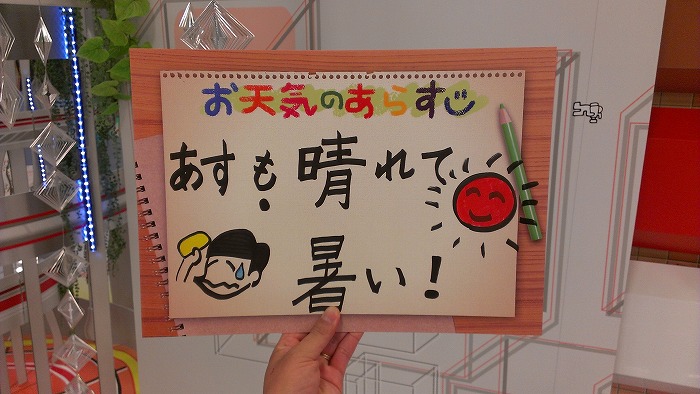 お天気のあらすじ
あすも晴れて
暑い!